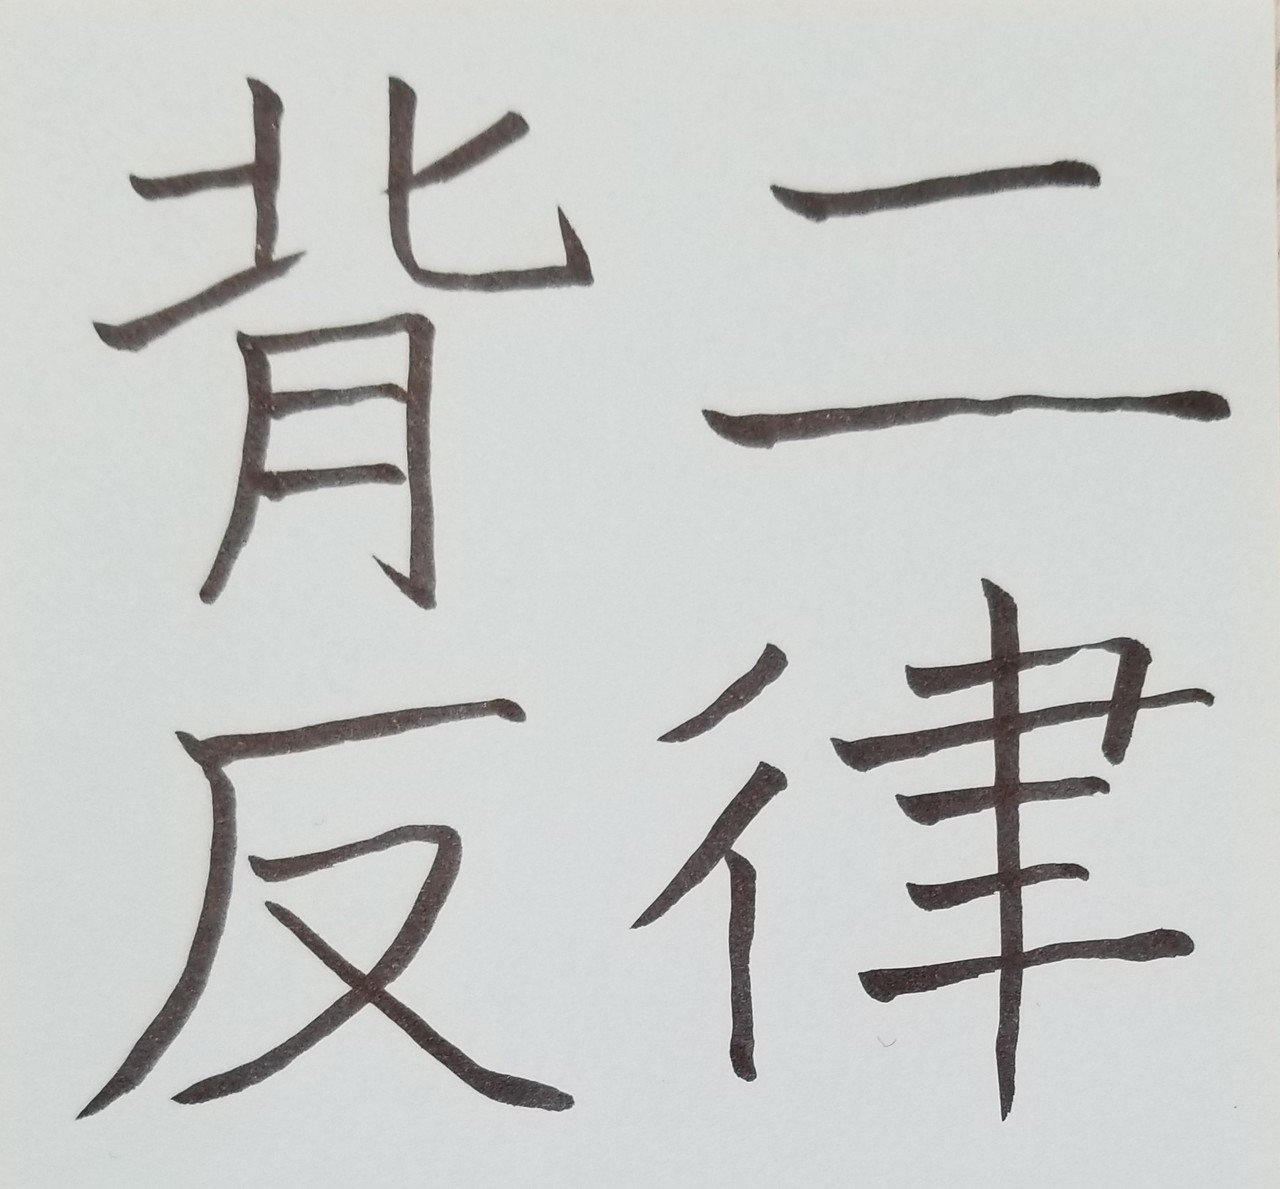 二律
背反